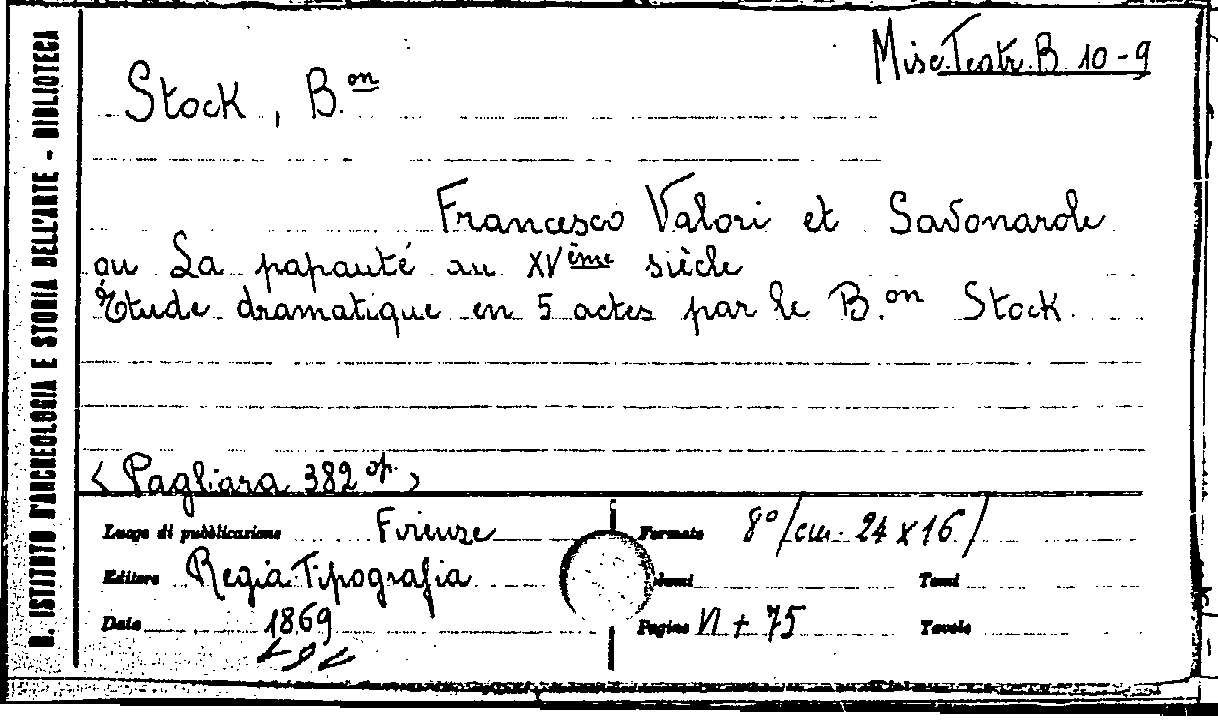 R. ISTITUTO D'ARCHEOLOGIA E STORIA DELL'ARTE - BIBLIOTECA
Misc. Teatr. B 10-9
Stock, B.on
Francesco Valori et Savonarole
ou La papauté au XVème siècle
Etude dramatique en 5 actes par le B.on Stock.
<Pagliara 382 op.>
Luogo di pubblicazione Firenze Formato 8º/cm 24 x 16/
Editore Regia Tipografia Tomi
Data 1869 Pagine VI + 75 Tavole